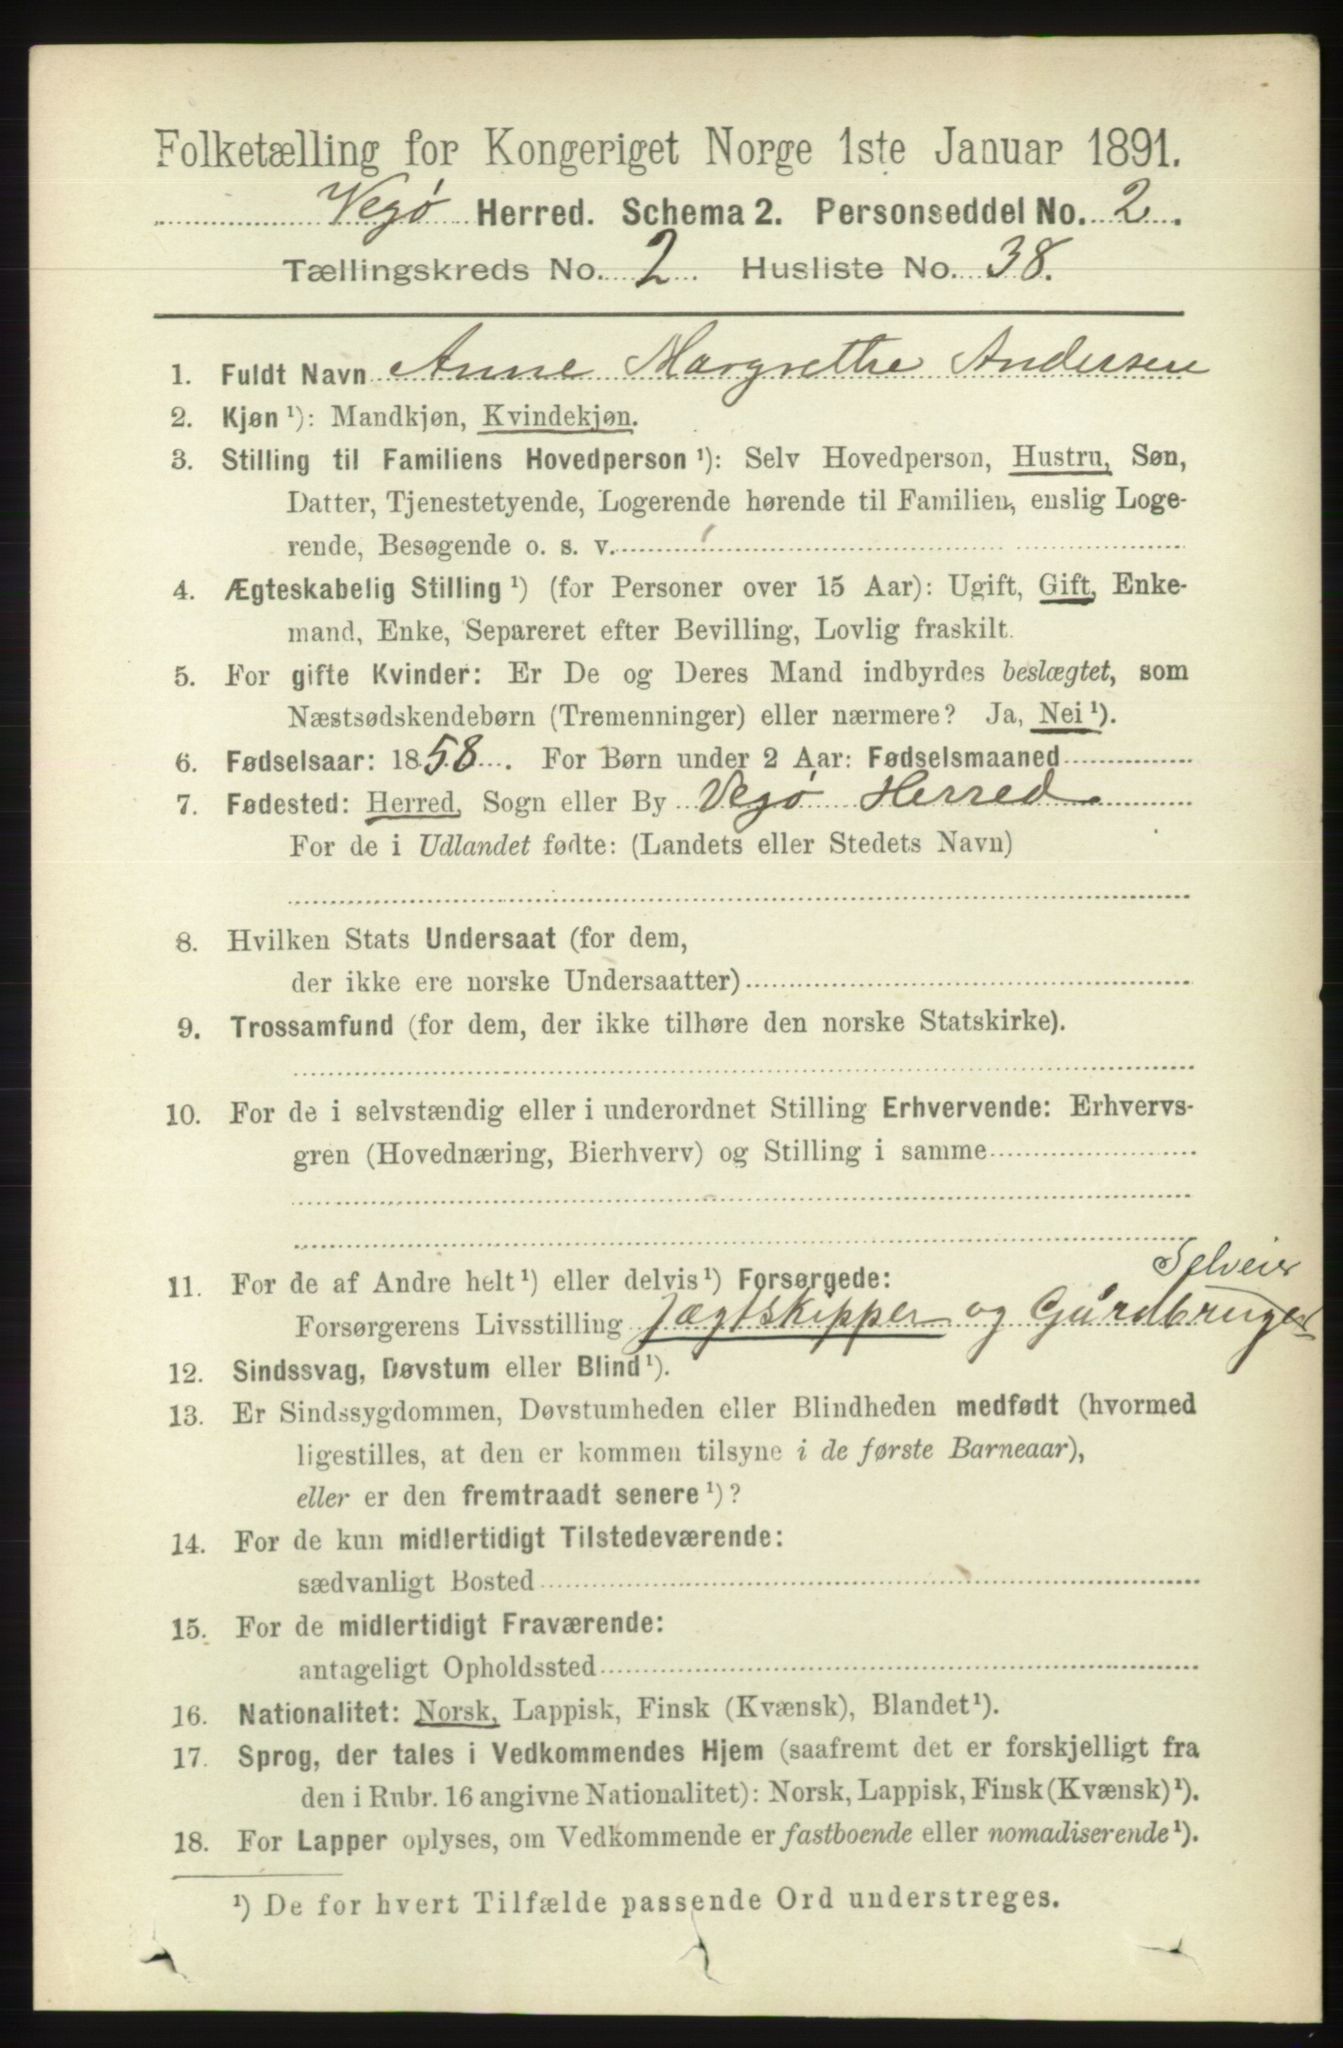 Folketælling for Kongeriget Norge 1ste Januar 1891.
Vegø Herred. Schema 2. Personseddel No. 2.
Tællingskreds No. 2 Husliste No. 38.
1. Fuldt Navn Anne Margrethe Andersen
2. Kjøn ¹): Mandkjøn, Kvindekjøn.
3. Stilling til Familiens Hovedperson ¹): Selv Hovedperson, Hustru, Søn,
Datter, Tjenestetyende, Logerende hørende til Familien, enslig Loge-
rende, Besøgende o. s. v.
4. Ægteskabelig Stilling ¹) (for Personer over 15 Aar): Ugift, Gift, Enke-
mand, Enke, Separeret efter Bevilling, Lovlig fraskilt.
5. For gifte Kvinder: Er De og Deres Mand indbyrdes beslægtet, som
Næstsødskendebørn (Tremenninger) eller nærmere? Ja, Nei ¹).
6. Fødselsaar: 1858. For Børn under 2 Aar: Fødselsmaaned
7. Fødested: Herred, Sogn eller By Vegø Herred
For de i Udlandet fødte: (Landets eller Stedets Navn)
8. Hvilken Stats Undersaat (for dem,
der ikke ere norske Undersaatter)
9. Trossamfund (for dem, der ikke tilhøre den norske Statskirke).
10. For de i selvstændig eller i underordnet Stilling Erhvervende: Erhvervs-
gren (Hovednæring, Bierhverv) og Stilling i samme
Selveier
11. For de af Andre helt ¹) eller delvis ¹) Forsørgede:
Forsørgerens Livsstilling Jægtskipper og Gårdbruger
12. Sindssvag, Døvstum eller Blind ¹).
13. Er Sindssygdommen, Døvstumheden eller Blindheden medfødt (hvormed
ligestilles, at den er kommen tilsyne i de første Barneaar),
eller er den fremtraadt senere ¹)?
14. For de kun midlertidigt Tilstedeværende:
sædvanligt Bosted
15. For de midlertidigt Fraværende:
antageligt Opholdssted
16. Nationalitet: Norsk, Lappisk, Finsk (Kvænsk), Blandet ¹).
17. Sprog, der tales i Vedkommendes Hjem (saafremt det er forskjelligt fra
den i Rubr. 16 angivne Nationalitet): Norsk, Lappisk, Finsk (Kvænsk) ¹).
18. For Lapper oplyses, om Vedkommende er fastboende eller nomadiserende ¹).
¹) De for hvert Tilfælde passende Ord understreges.